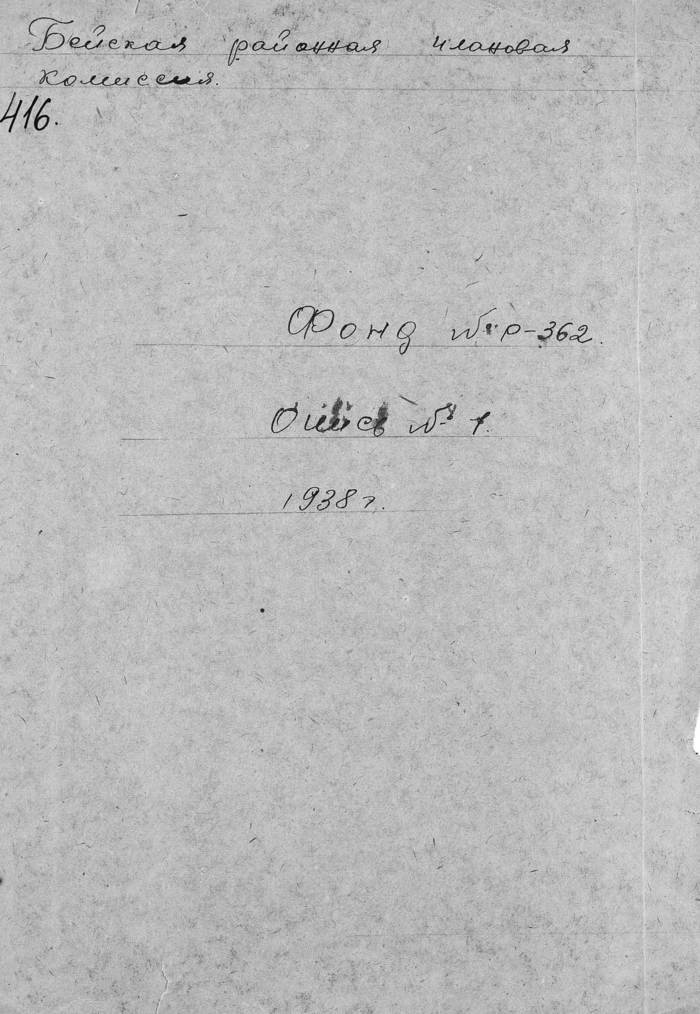 Бейская районная плановая
комиссия.
416.
Фонд № Р-362.
Опись № 1.
1938 г.